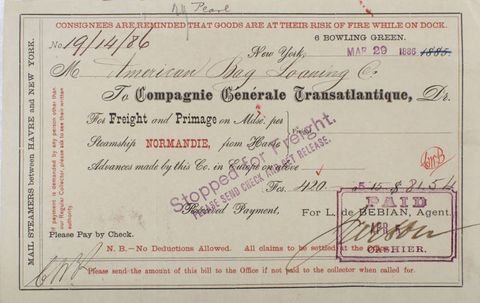 Pearl
CONSIGNEES ARE REMINDED THAT GOODS ARE AT THEIR RISK OF FIRE WHILE ON DOCK.
6 BOWLING GREEN.
No 19/14/86
New York, MAR 29 1886 1885.
M American Bag Loaning Co
To Compagnie Générale Transatlantique, Dr.
For Freight and Primage on Mdse. per
Steamship NORMANDIE, from Havre
Advances made by this Co. in Europe on above
Stopped for Freight.
PLEASE SEND CHECK AND GET RELEASE.
Fcs. 420 5.15 $ 81.54
Received Payment,
For L. de BÉBIAN, Agent.
PAID
APR
CASHIER.
Please Pay by Check.
N. B.—No Deductions Allowed. All claims to be settled at the
Please send the amount of this bill to the Office if not paid to the collector when called for.
MAIL STEAMERS between HAVRE and NEW YORK.
If payment is demanded by any person other
than our Regular Collector, please ask to see their written
authority.